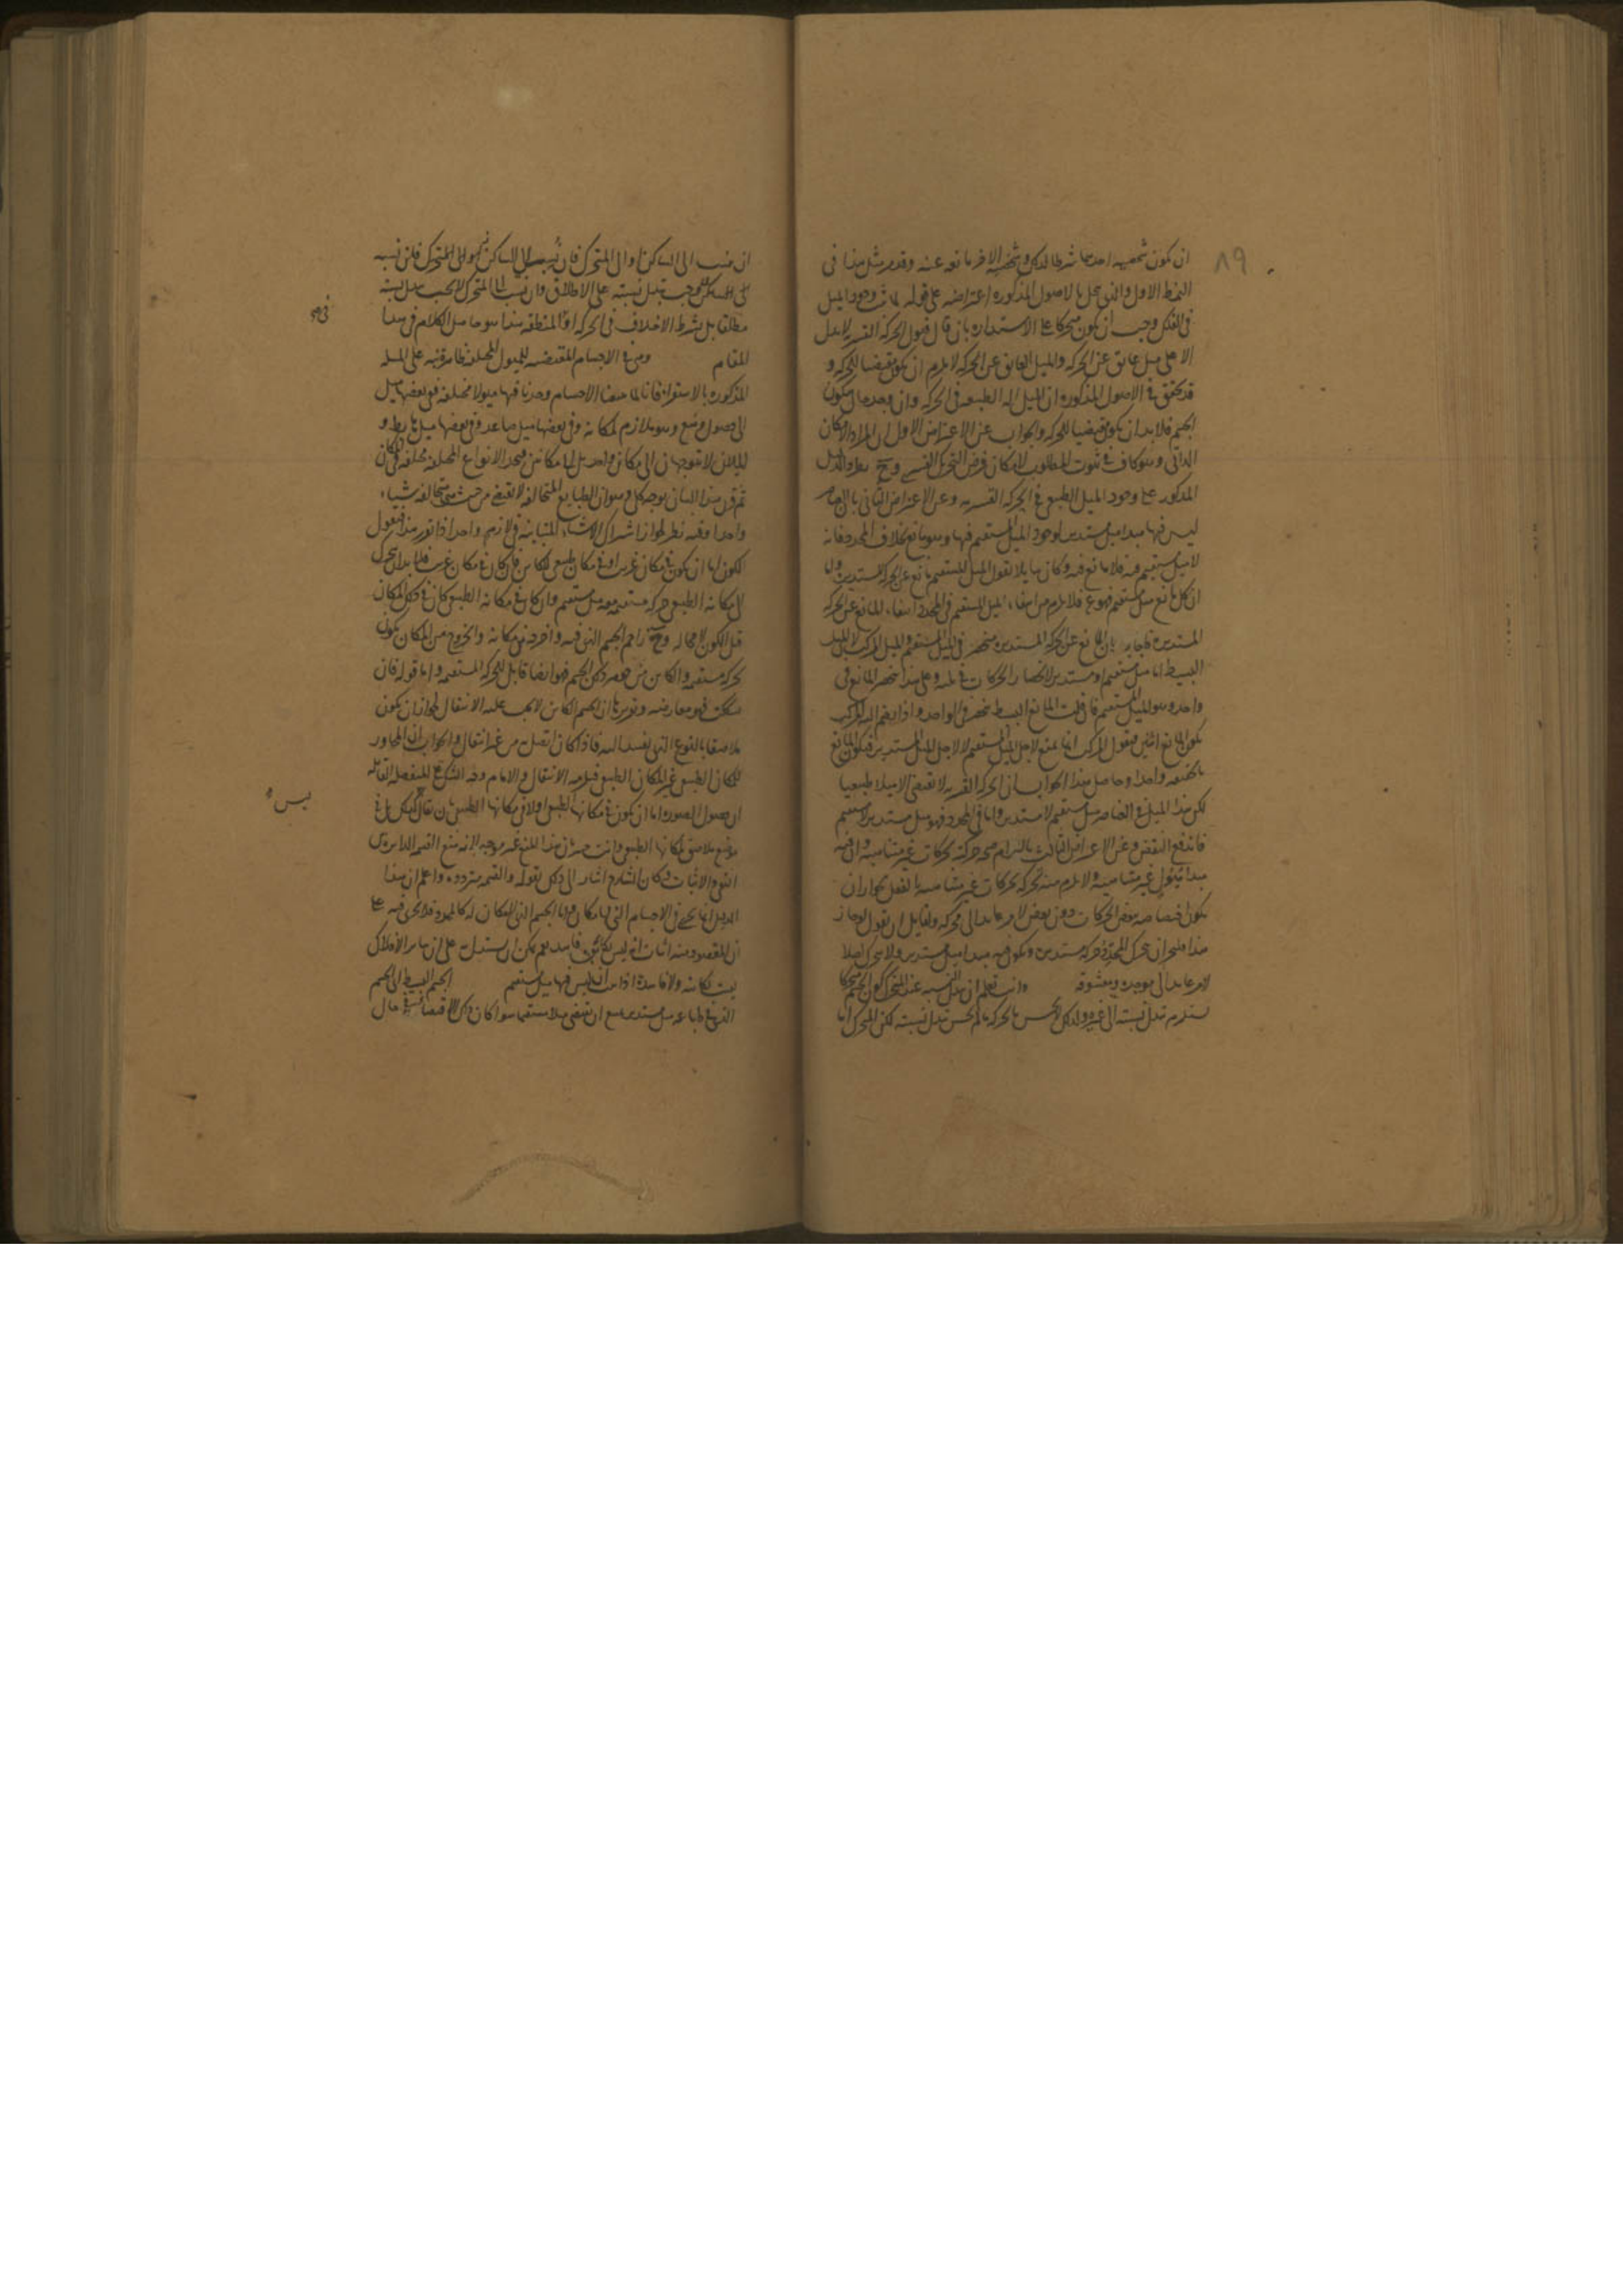 ٨٩
ان يكون شخصيه احدهما شرطا لذلك وشخصية الاخر مانعه عنه وقد مر مثل هذا فى
النمط الاول والذى يخل بالاصول المذكوره اعتراضه على قوله لما ثبت وجود الميل
فى الفلك وجب ان يكون متحركا على الاستداره بان قال قبول الحركه القسريه لا يدل
الا على ميل عائق عن الحركه والميل العائق عن الحركه لا يلزم ان يكون مقتضيا للحركه و
قد تحقق فى الاصول المذكوره ان الميل اله الطبيعه فى الحركه وان وجد حال سكون
الجسم فلا بد ان يكون مقتضيا للحركه والجواب عن الاعتراض الاول ان المراد الامكان
الذاتى وهو كاف فى ثبوت المطلوب لامكان فرض التحريك القسرى وح يطرد الدليل
المذكور على وجود الميل الطبيعى فى الحركه القسريه وعن الاعتراض الثانى بان العناصر
ليس فيها مبدا ميل مستدير لوجود الميل المستقيم فيها وهو مانع بخلاف المحدد فانه
لا ميل مستقيم فيه فلا مانع فيه وكان سايلا يقول الميل المستقيم مانع عن الحركه المستديره واما
ان كل مانع ميل مستقيم فهو ع فلا يلزم من انتفاء الميل المستقيم فى المحدد انتفاء المانع عن الحركه
المستديره فاجاب بان المانع عن الحركه المستديره منحصر فى الميل المستقيم والميل المركب لان الميل
البسيط اما ميل مستقيم او مستدير لانحصار الحركات فى ثلثه وعلى هذا ينحصر المانع فى
واحد وهو الميل المستقيم فان قلت المانع البسيط ينحصر فى الواحد واذا انضم اليه المركب
يكون المانع اثنين فنقول المركب انما يمنع لاجل الميل المستقيم لا لاجل الميل المستدير فيكون المانع
بالحقيقه واحدا وحاصل هذا الجواب ان الحركه القسريه لا تقتضى الا ميلا طبيعيا
لكن هذا الميل فى العناصر ميل مستقيم لا مستدير واما فى المحدد فهو ميل مستدير لا مستقيم
فاندفع النقض وعن الاعتراض الثالث بالتزام صحه حركته بحركات غير متناهيه وان فيه
مبدا ميول غير متناهيه ولا يلزم منه تحركه بحركات غير متناهيه بالفعل لجواز ان
يكون اختصاصه ببعض الحركات دون بعض لامر عايد الى محركه ولقايل ان يقول لو جاز
هذا فليجز ان يتحرك المحدد حركه مستديره ويكون فيه مبدا ميل مستدير ولا يتحرك اصلا
لامر عايد الى موجده ومعشوقه وانت تعلم ان تبدل النسبه عند المتحرك كون الجسم متحركا
يستلزم تبدل نسبته الى غيره ولذلك لا يحس بالحركه ما لم يحس بتبدل نسبته لكن المتحرك اما
ان ينسب الى الساكن او الى المتحرك فان نسب الى الساكن او الى المتحرك فان نسبه
الى الساكن يوجب تبدل نسبته على الاطلاق وان نسب الى المتحرك لا يجب تبدل نسبته
مطلقا بل بشرط الاختلاف فى الحركه او المنطقه هذا هو حاصل الكلام فى هذا
المقام ومن فى الاجسام المقتضيه للميول المختلفه ظاهر قنبه على المسله
المذكوره بالاستقراء فانا لما صفنا الاجسام وجدنا فيها ميولا مختلفه ففى بعضها ميل
الى حصول وضع وهو ملازم لمكانه وفى بعضها ميل صاعد وفى بعضها ميل هابط و
الميلان لا يتوجهان الى مكان واحد بل الى مكانين فنجد الانواع المختلفه مختلفه فى المكان
ثم قرر هذا البيان بوجه كلى وهو ان الطبايع المتخالفه لا تقتضى من حيث هى متخالفه شيئا
واحدا وفيه نظر لجواز اشتراك الاشياء المتباينه فى لازم واحد اذا تقرر هذا فنقول
الكون اما ان يكون فى مكان غريب او فى مكان طبيعى للكاين فان كان فى مكان غريب فلا بد ان يتحرك
الى مكانه الطبيعى حركه مستقيمه وفيه ميل مستقيم وان كان فى مكانه الطبيعى كان فى ذلك المكان
قبل الكون لا محاله وح زاحم الجسم الذى فيه واخرجه من مكانه والخروج من المكان يكون
بحركه مستقيمه والكاين من جوهر ذلك الجسم فهو ايضا قابل للحركه المستقيمه واما قوله فان
شككت فهو معارضه وتقريرها ان الجسم الكاين لا يجب عليه الانتقال لجواز ان يكون
ملاصقا بالنوع الذى يفسد اليه فاذا كان اتصل به من غير انتقال والجواب ان المجاور
للمكان الطبيعى غير المكان الطبيعى فيلزمه الانتقال والامام وجه الشك على المنفصله القايله
ان حصول الصوره اما ان يكون فى مكانها الطبيعى او لا فى مكانها الطبيعى بان يقال لم لا يكون فى
موضع ملاصق لمكانها الطبيعى وانت خبير بان هذا المنع غير موجه لانه منع القسمه الدايره بين
النفى والاثبات وكان الشارح اشار الى ذلك بقوله والقسمه مترددة واعلم ان هذا
الدليل انما يتم فى الاجسام التى لها مكان واما الجسم الذى لا مكان له كالمحدد فلا يجرى فيه على
ان المقصود منه اثبات انه ليس بكاين فاسد نعم يمكن ان يستدل به على ان ساير الافلاك
ليست بكاينه ولا فاسدة اذا ثبت ان ليس فيها ميل مستقيم الجسم البسيط الى الجسم
الذى فى طباعه ميل مستدير يمتنع ان يقتضى ميلا مستقيما سواء كان ذلك الاقتضاء فى حال